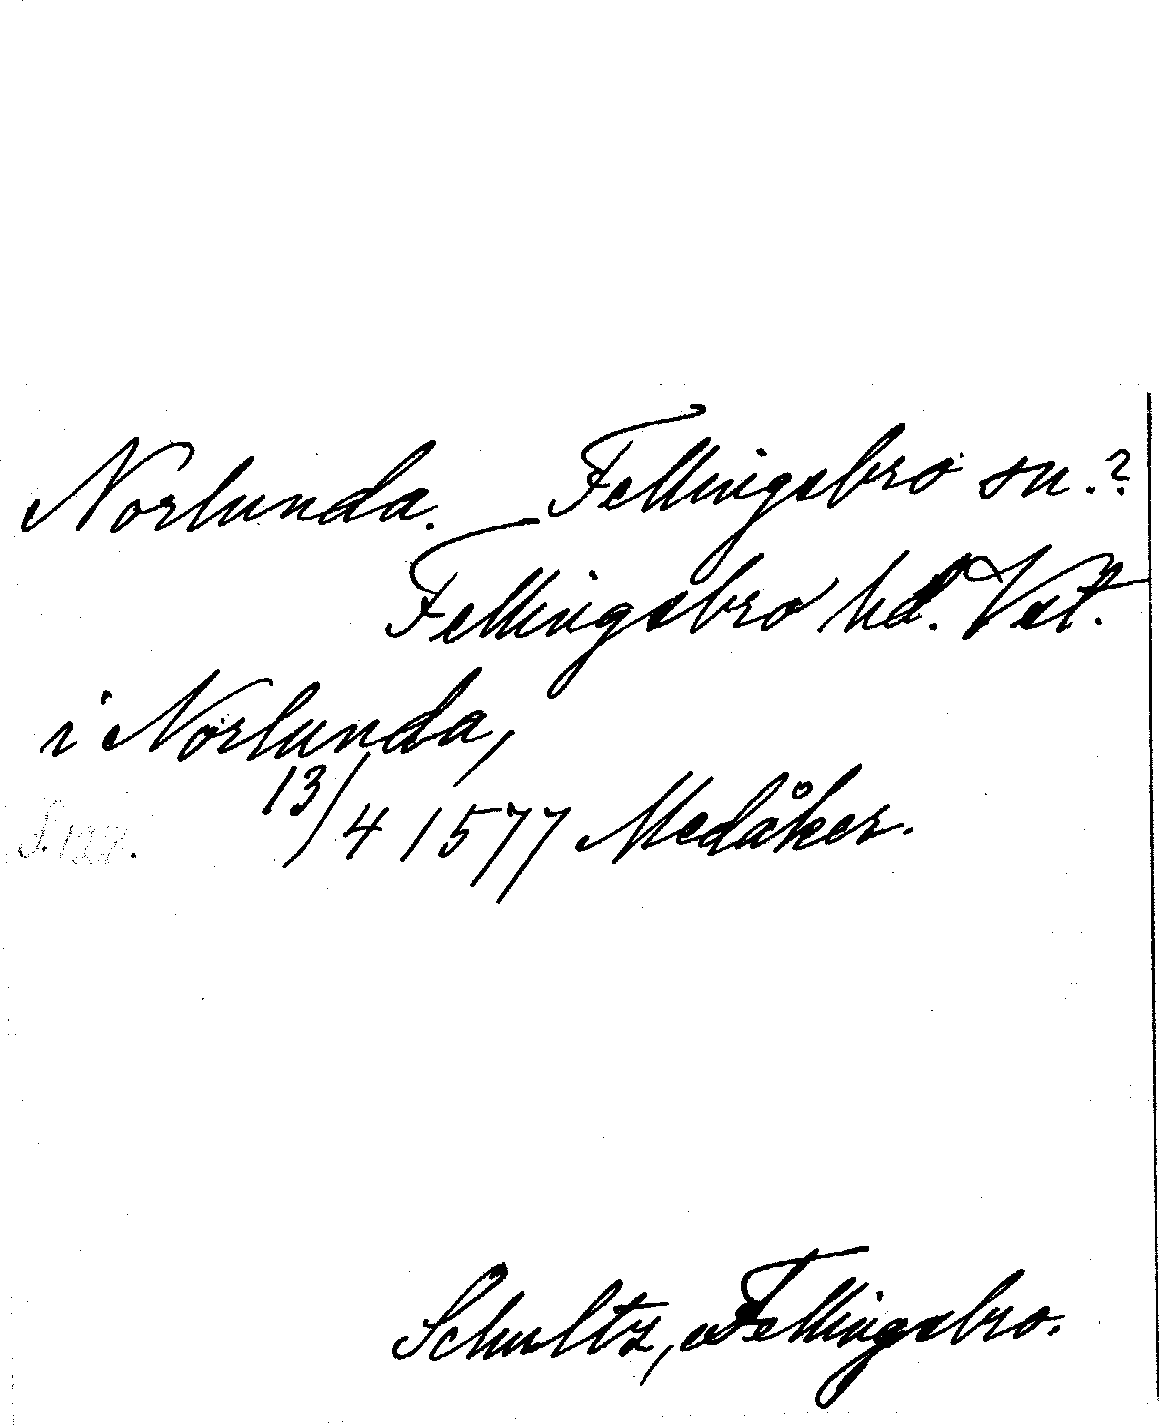 Norlunda. Fellingsbro sn.?
Fellingsbro hd. Vest.
i Norlunda,
13/4 1577 Medåker.
S. 127.
Schultz, Fellingsbro.